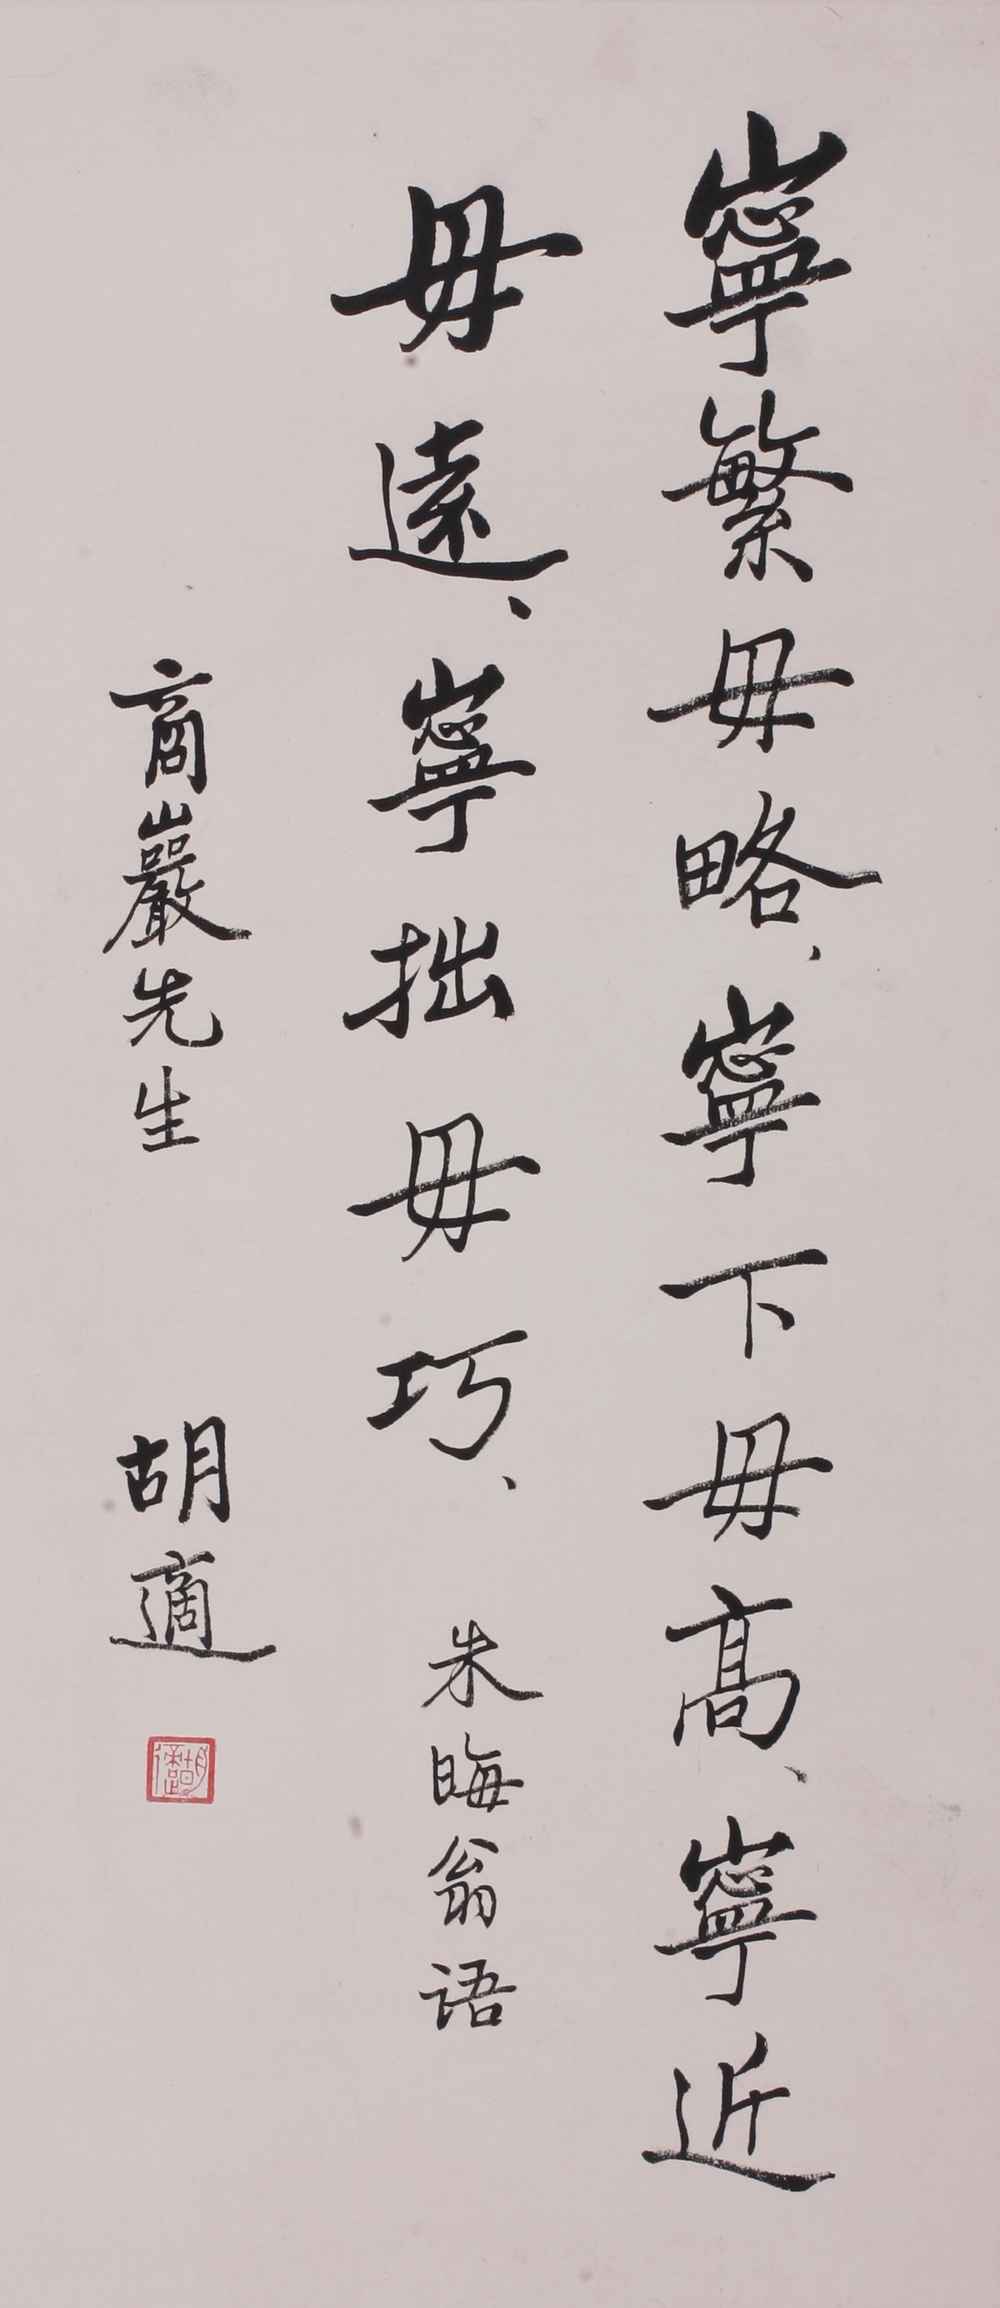 寧繁毋略、寧下毋高、寧近
毋遠、寧拙毋巧、
朱晦翁语
商巖先生
胡適
胡適